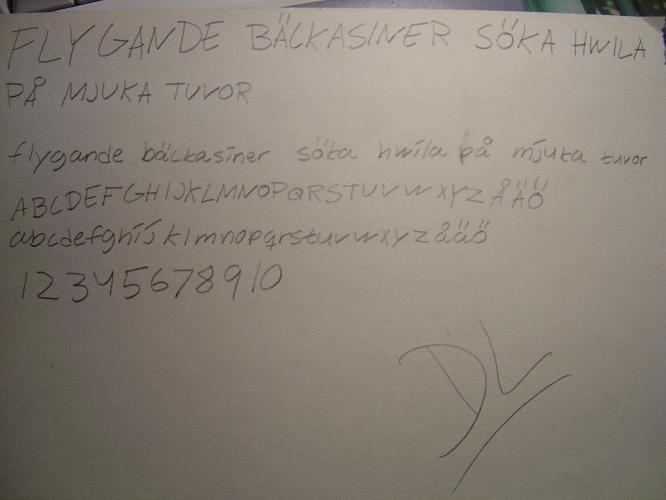 FLYGANDE BÄCKASINER SÖKA HWILA
PÅ MJUKA TUVOR
flygande bäckasiner söka hwila på mjuka tuvor
ABCDEFGHIJKLMNOPQRSTUVWXYZÅÄÖ
abcdefghijklmnopqrstuvwxyzåäö
12345678910